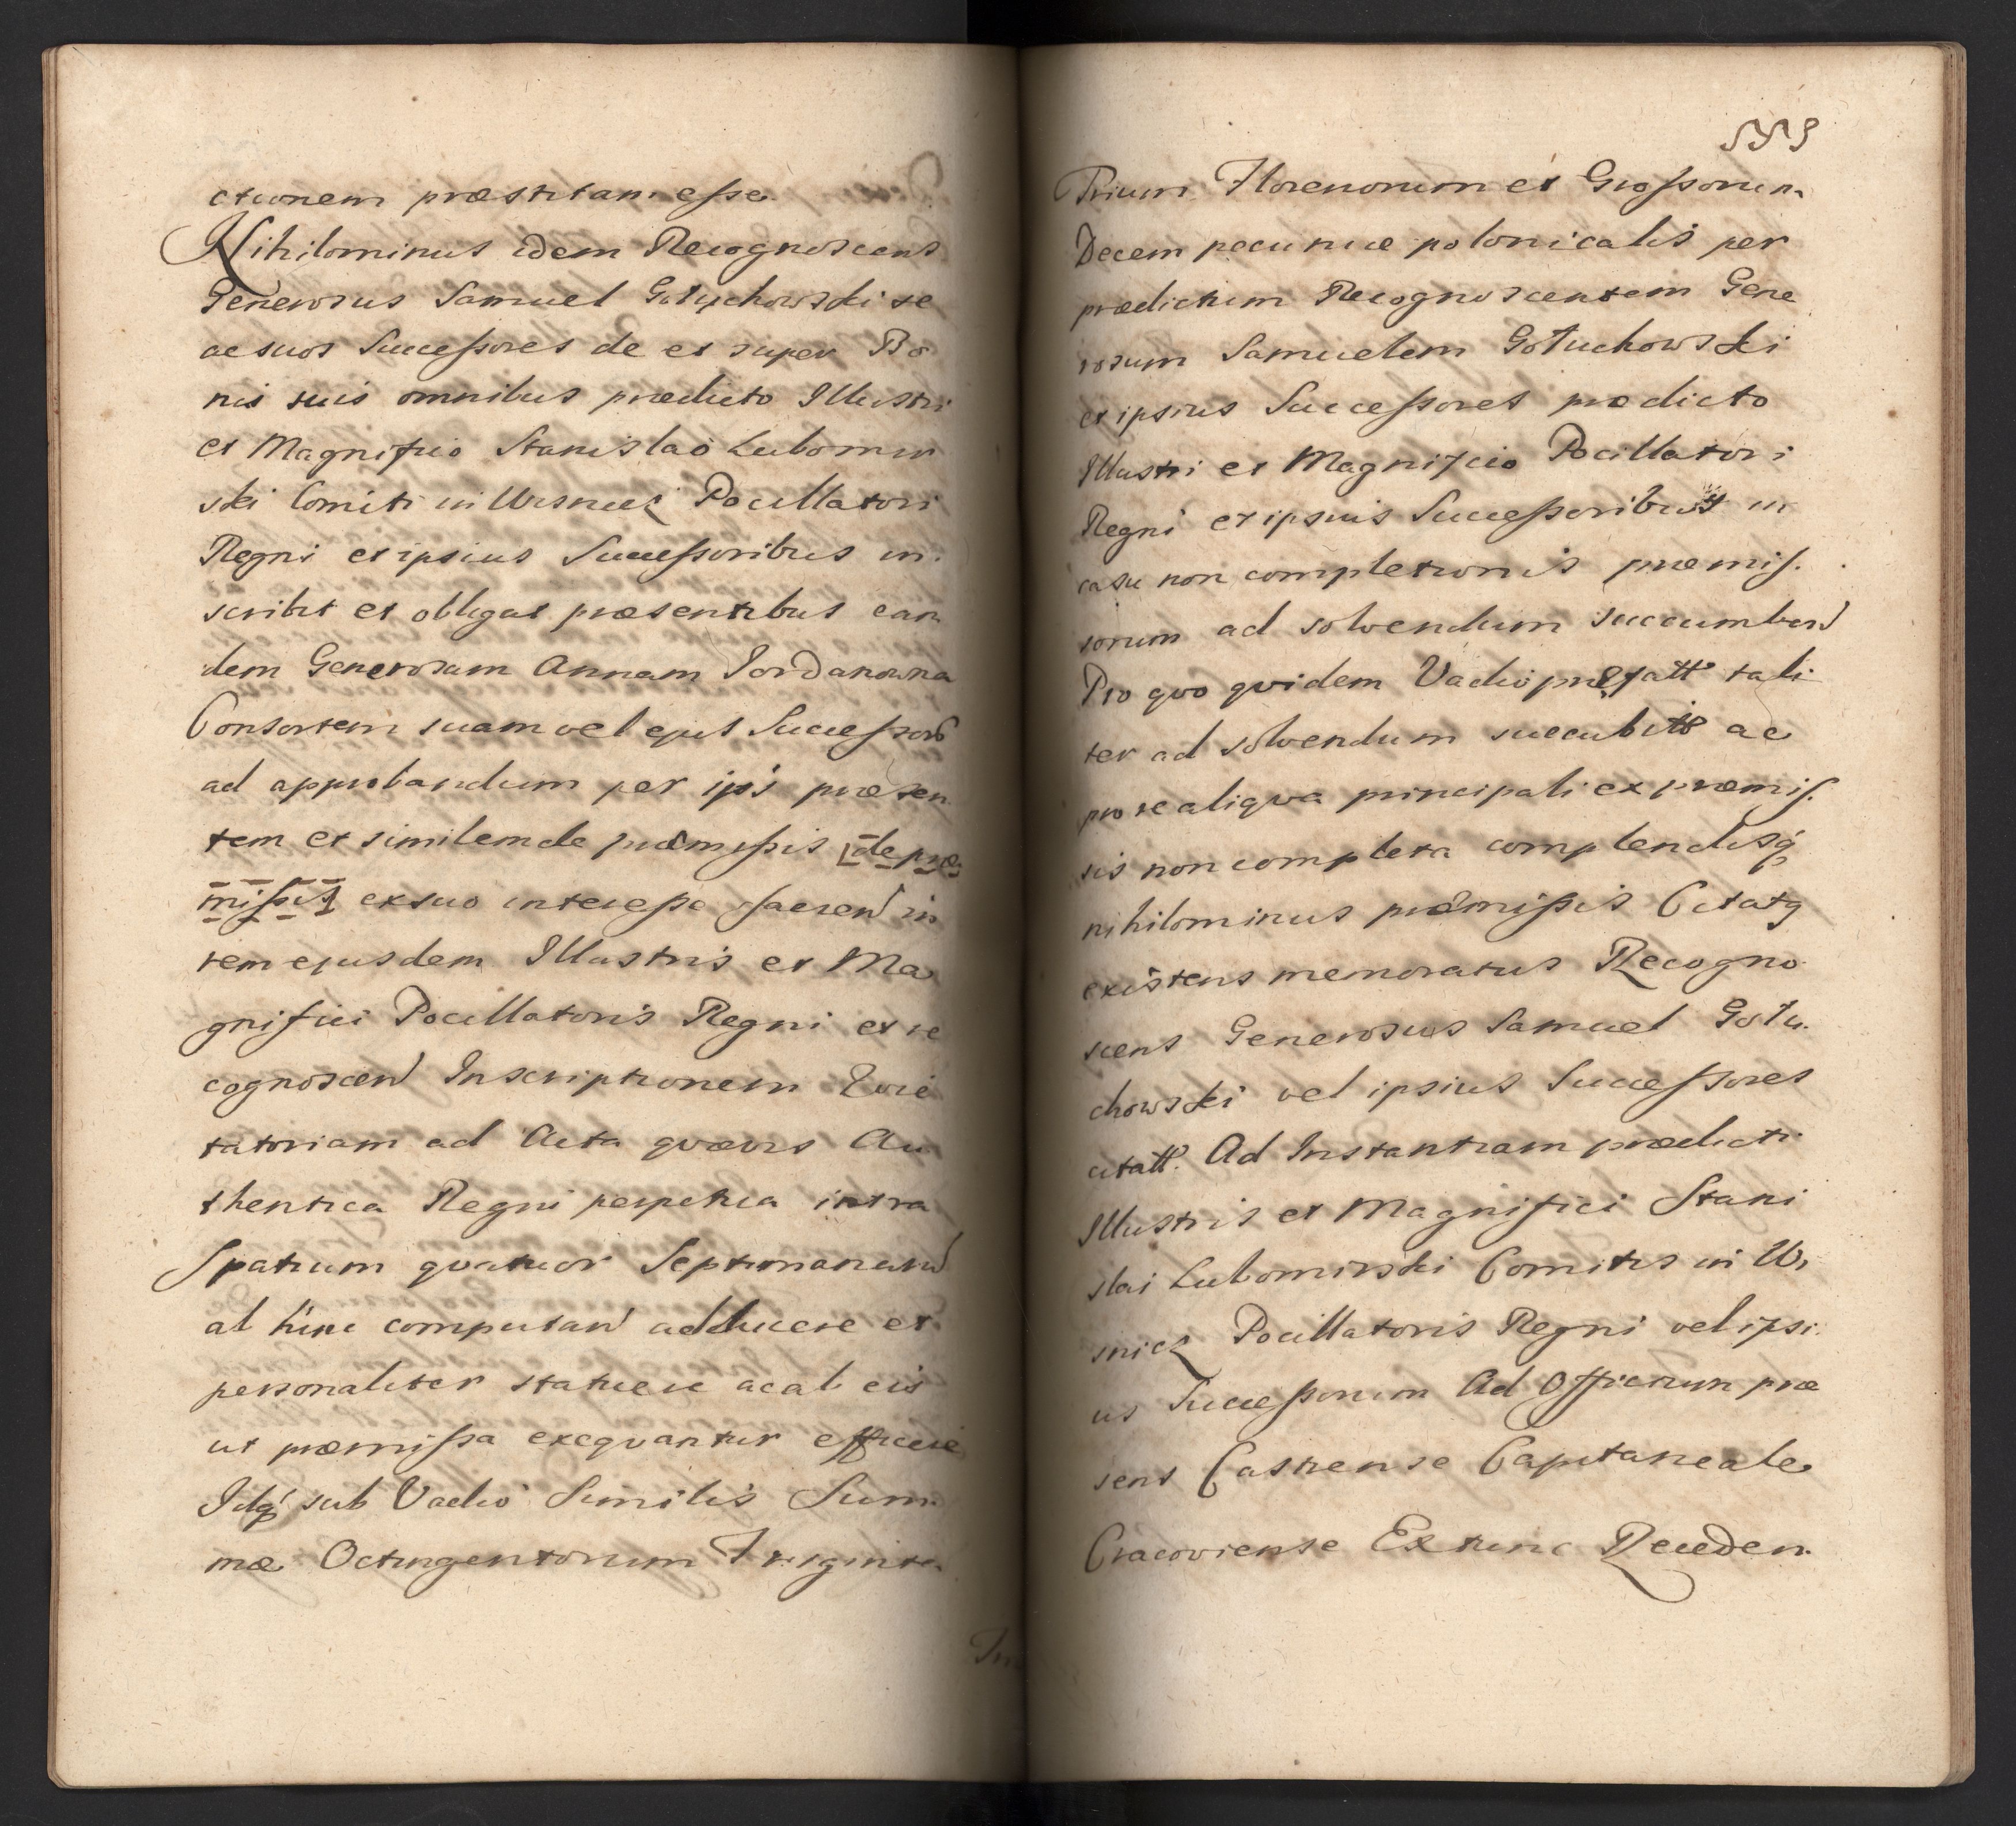 ctionem præstitam esse.
Nihilominus idem Recognoscens
Generosus Samuel Gołuchowski se
ac suos Successores de et super Bo
nis suis omnibus prædicto Illustri
et Magnifico Stanislao Lubomir
ski Comiti in Wisnicz Pocillatori
Regni et ipsius Successoribus in
scribit et obligat præsentibus ean
dem Generosam Annam Jordanowna
Consortem suam vel ejus Successores
ad approbandum per ipś præsen
tem et similem de præmissis de præ
missis ex suo interesse facien in
rem ejusdem Illustris et Ma
gnifici Pocillatoris Regni et re
cognoscen Inscriptionem
tatoriam ad Acta qvævis Au
thentica Regni perpetua intra
Spatium qvatuor Septimanarum
ab hinc computan adducere et
personaliter statuere ac ab eis
ut præmissa exeqvantur efficere
Idq sub Vadio Similis Sum
mæ Octingentorum Triginta
Trium Florenorum et Grossorum
Decem pecuniæ polonicalis per
prædictum Recognoscentem Gene
rosum Samuelem Gołuchowski
et ipsius Successores prædicto
Illustri et Magnifico Pocillatori
Regni et ipsius Successoribus in
casu non completionis præmis.
sorum ad solvendum succumben
Pro qvo qvidem Vadio præfatt tali
ter ad solvendum succubito ac
pro re aliqva principali ex præmis.
sis non completa complendisq
nihilominus præmissis Citatq
existens memoratus Recogno
scens Generosus Samuel Gołu.
chowski vel ipsius Successores
citatt. Ad Instantiam prædicti
Illustris et Magnifici Stani
slai Lubomirski Comitis in Wi
snicz Pocillatoris Regni vel ipsi.
us Successorum Ad Officium præ
sens Castrense Capitaneale
Cracoviense Extunc